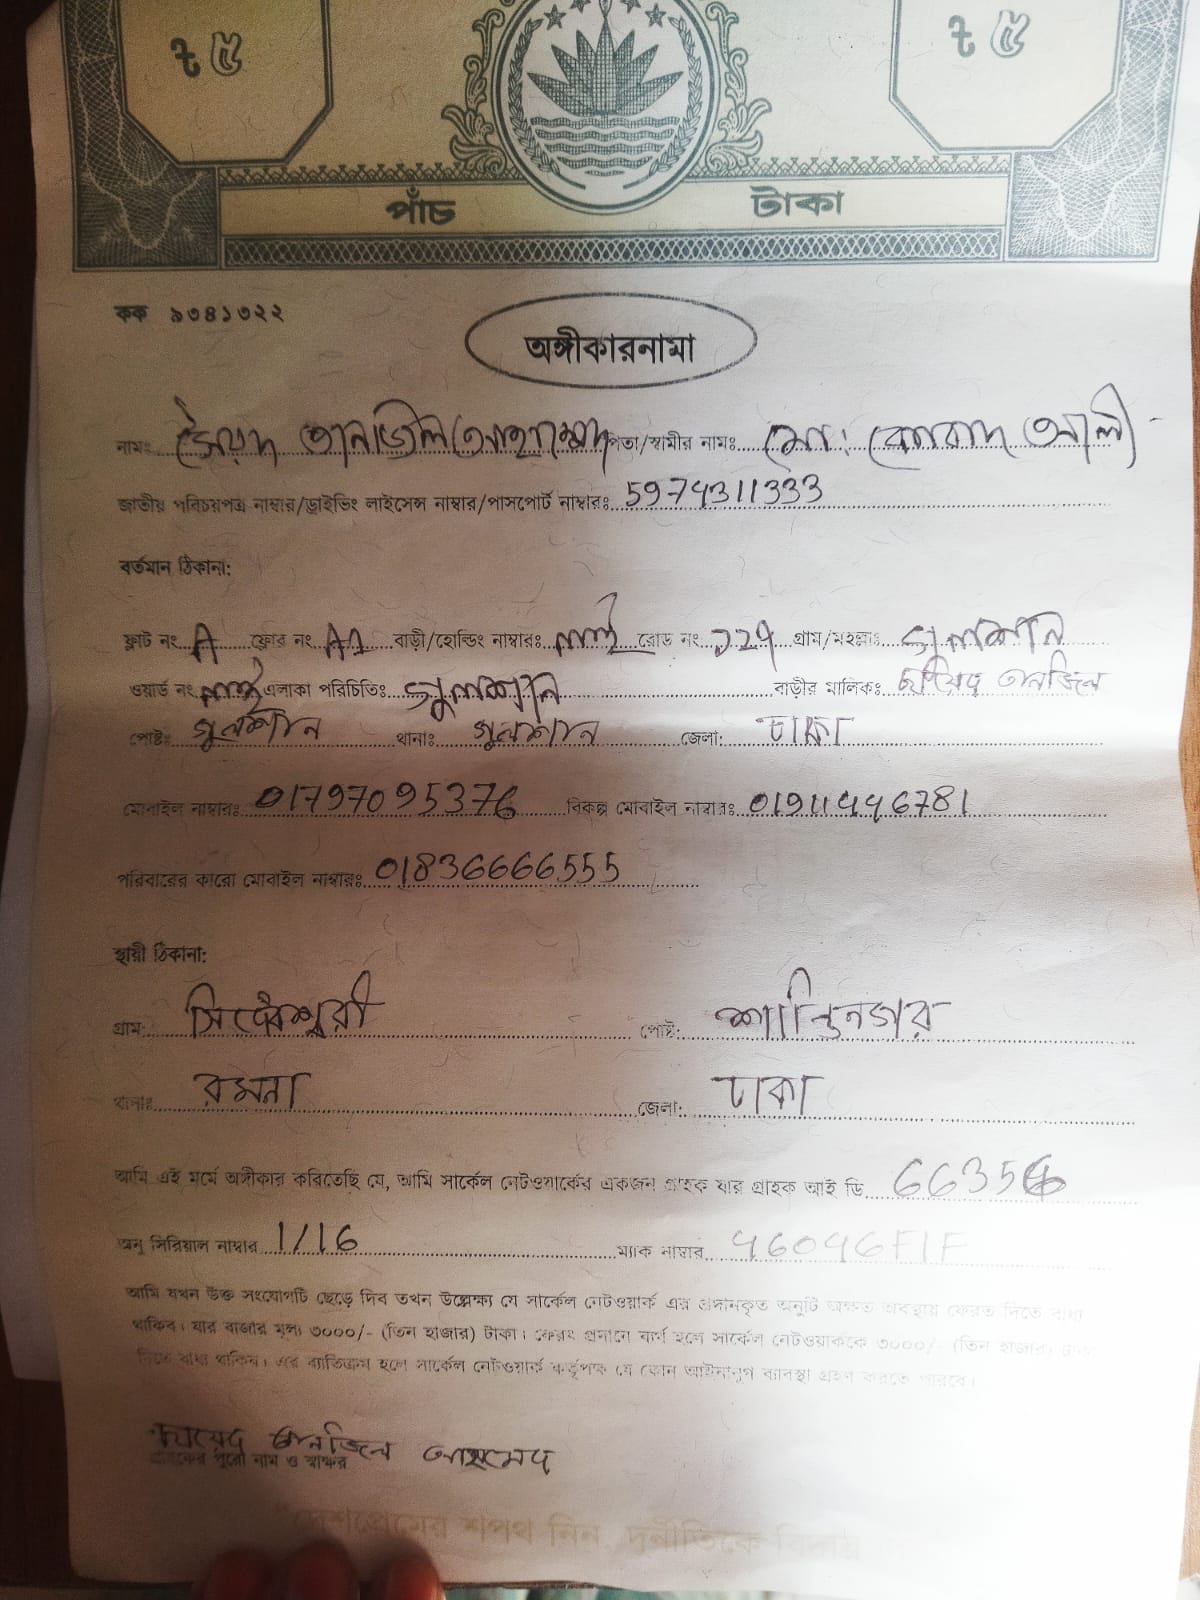 ৳ ৫ ৳ ৫
পাঁচ টাকা
কক ৯৩৪১৩২২
অঙ্গীকারনামা
নামঃ সৈয়দ তানজিল আহাম্মদ পিতা/স্বামীর নামঃ মো: আলী
জাতীয় পরিচয়পত্র নাম্বার/ড্রাইভিং লাইসেন্স নাম্বার/পাসপোর্ট নাম্বারঃ 5974311333
বর্তমান ঠিকানা:
ফ্লাট নং A ফ্লোর নং A2 বাড়ী/হোল্ডিং নাম্বারঃ নাই রোড নং ১২৭ গ্রাম/মহল্লাঃ গুলশান
ওয়ার্ড নং নাই এলাকা পরিচিতিঃ গুলশান বাড়ীর মালিকঃ তানজিল
পোষ্টঃ গুলশান থানাঃ গুলশান জেলা: ঢাকা
মোবাইল নাম্বারঃ 01797095376 বিকল্প মোবাইল নাম্বারঃ 01911446781
পরিবারের কারো মোবাইল নাম্বারঃ 01836666555
স্থায়ী ঠিকানা:
গ্রাম: সিদ্ধেশ্বরী পোষ্ট: শান্তিনগর
থানাঃ রমনা জেলা: ঢাকা
আমি এই মর্মে অঙ্গীকার করিতেছি যে, আমি সার্কেল নেটওয়ার্কের একজন গ্রাহক যার গ্রাহক আই ডি 66356
অনু সিরিয়াল নাম্বার 1/16 ম্যাক নাম্বার 46046F1F
আমি যখন উক্ত সংযোগটি ছেড়ে দিব তখন উল্লেক্ষ্য যে সার্কেল নেটওয়ার্ক এর প্রদানকৃত অনুটি অক্ষত অবস্থায় ফেরত দিতে বাধ্য
থাকিব। যার বাজার মূল্য ৩০০০/- (তিন হাজার) টাকা। ফেরৎ প্রদানে ব্যর্থ হলে সার্কেল নেটওয়ার্ককে ৩০০০/- (তিন হাজার) টাকা
দিতে বাধ্য থাকিব। এর ব্যতিক্রম হলে সার্কেল নেটওয়ার্ক কর্তৃপক্ষ যে কোন আইনানুগ ব্যবস্থা গ্রহণ করতে পারবে।
তানজিল আহমেদ
গ্রাহকের পুরো নাম ও স্বাক্ষর
দেশপ্রেমের শপথ নিন, দুর্নীতিকে বিদায়